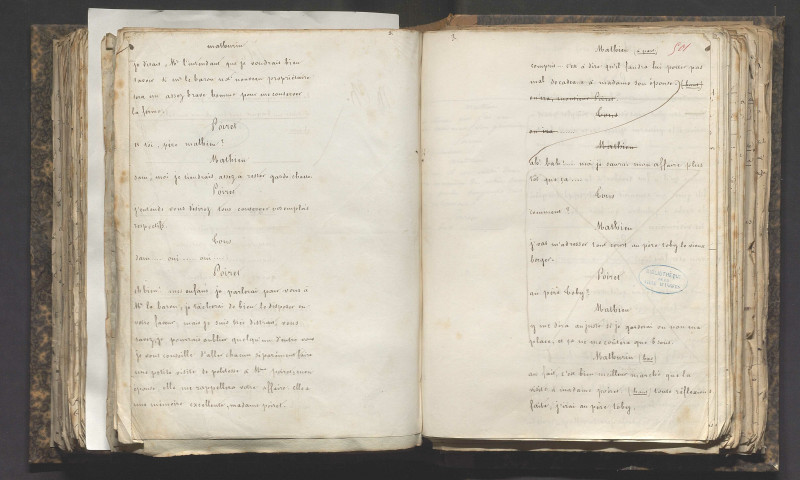 mathurin
je dirais, Mr l'intendant que je voudrais bien
savoir si mr le baron notre nouveau propriétaire
sera un assez brave homme pour me conserver
la ferme.
Poiret
et toi, père mathieu ?
Mathieu
dam, moi je tiendrais assez à rester garde chasse
Poiret
j'entends vous désirez tous conserver vos emplois
respectifs.
Tous
dam .... oui .... oui ....
Poiret
eh bien! mes enfans, je parlerai pour vous à
Mr le baron, je tâcherai de bien le disposer en
votre faveur, mais je suis très distrait, vous
savez, je pourrais oublier quelqu'un d'entre vous
je vous conseille d'aller chacun séparément faire
une petite visite de politesse à Mme poiret, mon
épouse, elle me rappellera votre affaire elle a
une mémoire excellente, madame poiret.
3.
Mathieu (à part)
501
compris - c'est à dire qu'il faudra lui porter pas
mal de cadeaux à madame son épouse. (haut)
Poiret
Tous
Mathieu
ah! bah! .... moi je saurai mon affaire plus
tôt que ça ....
Tous
comment ?
Mathieu
j'vas m'adresser tout droit au père toby le vieux
berger.
Poiret
au père toby ?
Mathieu
y me dira au juste si je garderai ou non ma
place, et ça ne me coûtera que 6 sous.
Mathurin (bas)
au fait, c'est bien meilleur marché que la
visite à madame poiret. (haut) toute réflexion
faite, j'irai au père toby.
BIBLIOTHÈQUE
DE LA